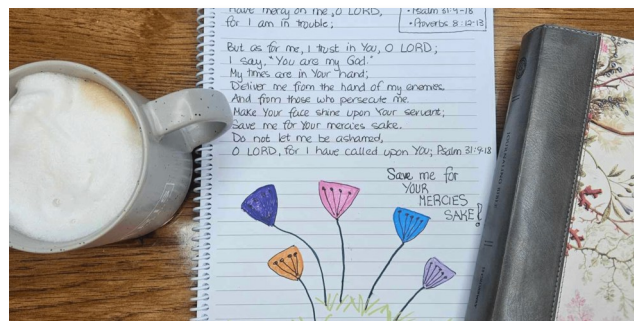 Have mercy on me, O LORD,
for I am in trouble;
• Psalm 31:9-18
• Proverbs 8:12-13
But as for me, I trust in You, O LORD;
I say, "You are my God."
My times are in Your hand;
Deliver me from the hand of my enemies
And from those who persecute me.
Make Your face shine upon Your servant;
Save me for Your mercies sake.
Do not let me be ashamed,
O LORD, for I have called upon You; Psalm 31:9-18
Save me for
YOUR
MERCIES
SAKE!